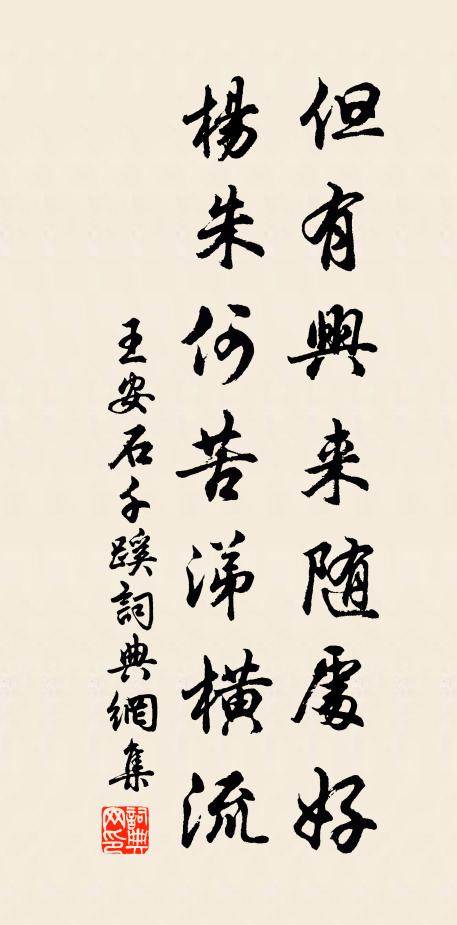 但有興来随處好
楊朱何苦涕橫流
王安石千蹊詞典網集
詞典網印